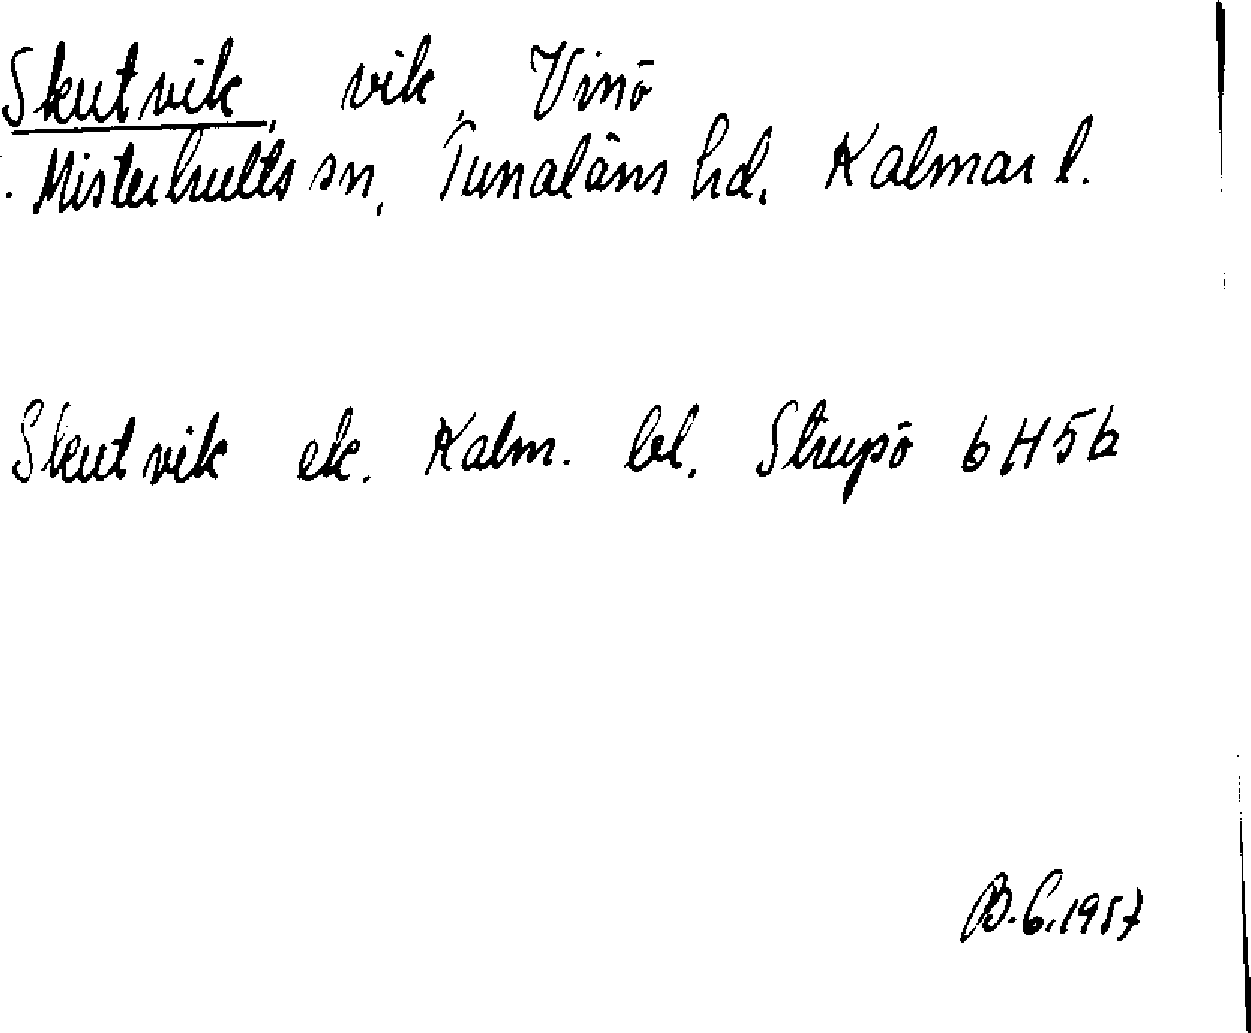 Skutvik, vik, Vinö
Misterhults sn, Tunaläns hd. Kalmar l.
Skutvik ek. Kalm. bl. Strupö 6H5b
B.G.1957